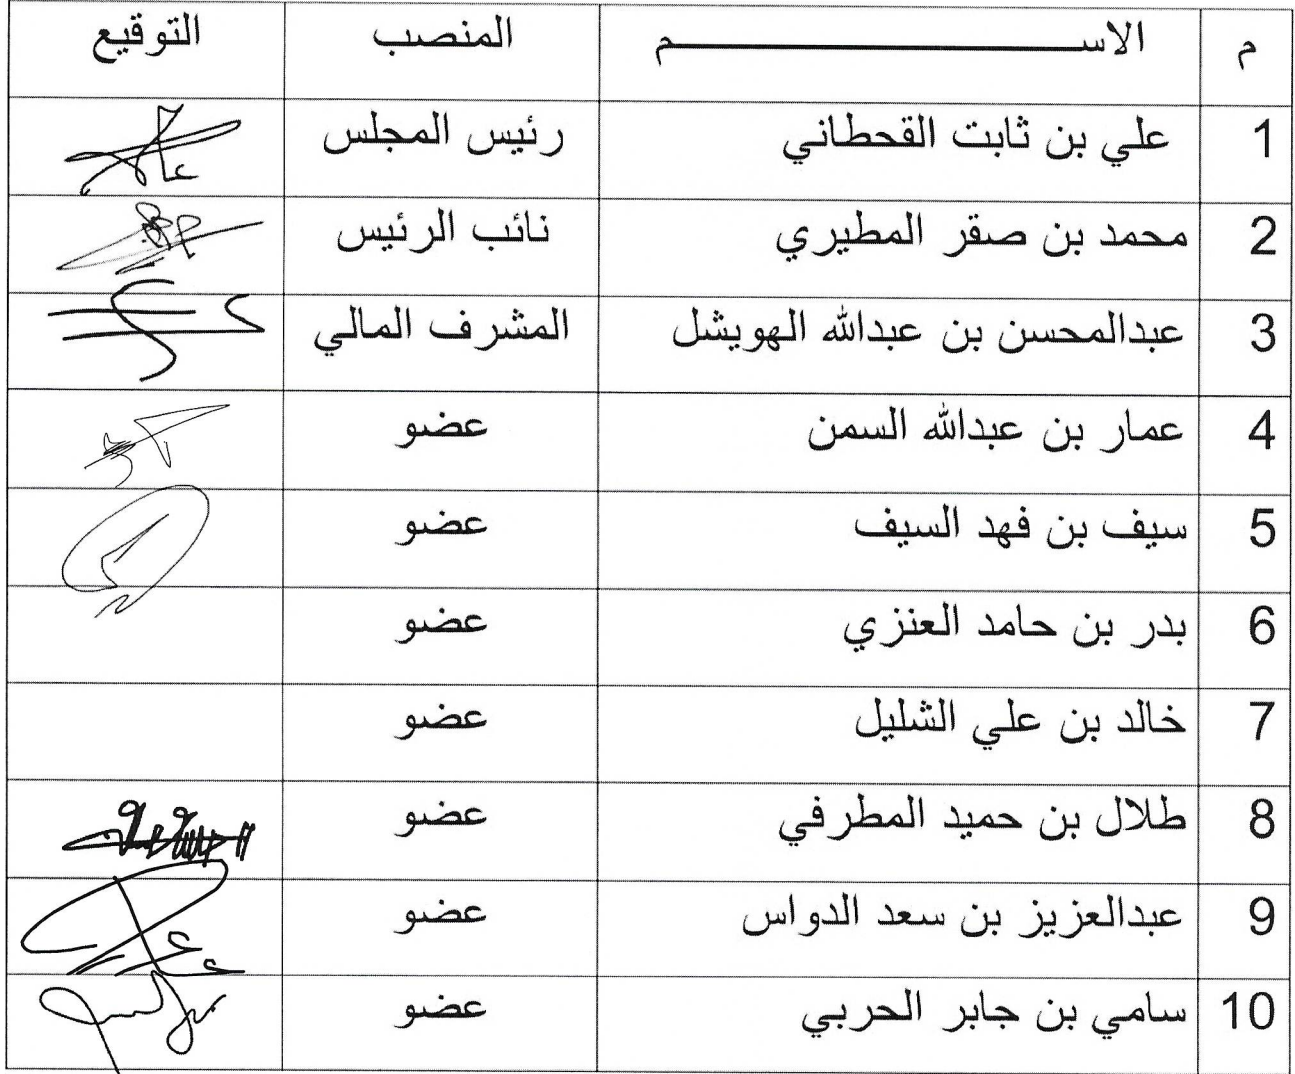 م الاســـــــــــــــــــــــم المنصب التوقيع
1 علي بن ثابت القحطاني رئيس المجلس
2 محمد بن صقر المطيري نائب الرئيس
3 عبدالمحسن بن عبدالله الهويشل المشرف المالي
4 عمار بن عبدالله السمن عضو
5 سيف بن فهد السيف عضو
6 بدر بن حامد العنزي عضو
7 خالد بن علي الشليل عضو
8 طلال بن حميد المطرفي عضو
9 عبدالعزيز بن سعد الدواس عضو
10 سامي بن جابر الحربي عضو